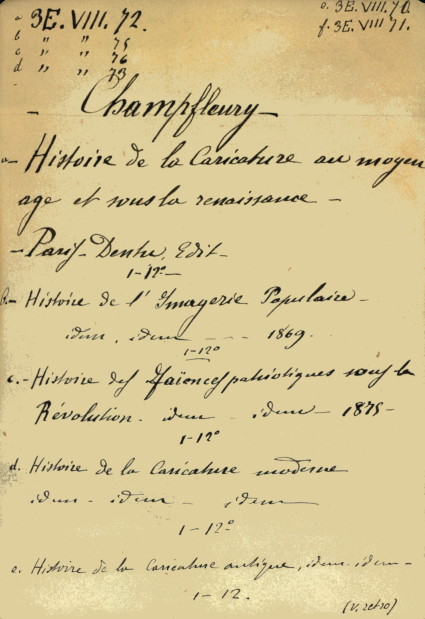 a 3E. VIII. 72.
b " " 75
c " " 76
d " " 73
e. 3E. VIII 70.
f. 3E. VIII 71.
- Champfleury -
a- Histoire de la Caricature au moyen
age et sous la renaissance -
- Paris - Dentu, Edit -
1-12º-
b.- Histoire de l'Imagerie Populaire -
idem, idem - - - 1869.
1-12º
c.- Histoire des Faïences patriotiques sous la
Révolution - idem - idem - 1875-
1-12º
d. Histoire de la Caricature moderne
idem - idem - idem
1-12º
e. Histoire de la Caricature antique, idem - idem -
1-12.
(V. retro)